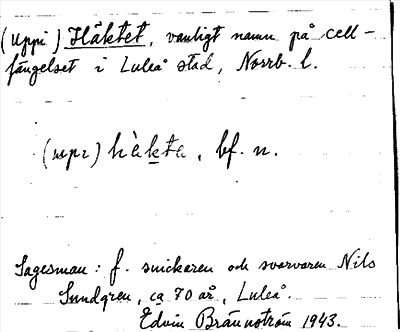 (Uppi) Häktet, vanligt namn på cell-
fängelset i Luleå stad, Norrb. l.
(upi) hèkta, bf. n.
Sagesman: f. snickaren och svarvaren Nils
Sundgren, ca 70 år, Luleå.
Edvin Brännström 1943.